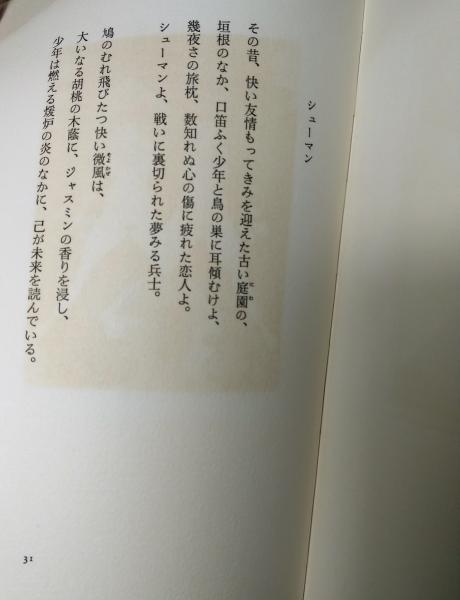 シューマン
その昔、快い友情もってきみを迎えた古い庭園の、
にわ
垣根のなか、口笛ふく少年と鳥の巣に耳傾むけよ、
幾夜さの旅枕、数知れぬ心の傷に疲れた恋人よ。
シューマンよ、戦いに裏切られた夢みる兵士。
鳩のむれ飛びたつ快い微風は、
そよかぜ
大いなる胡桃の木蔭に、ジャスミンの香りを浸し、
少年は燃える煖炉の炎のなかに、己が未来を読んでいる。
31